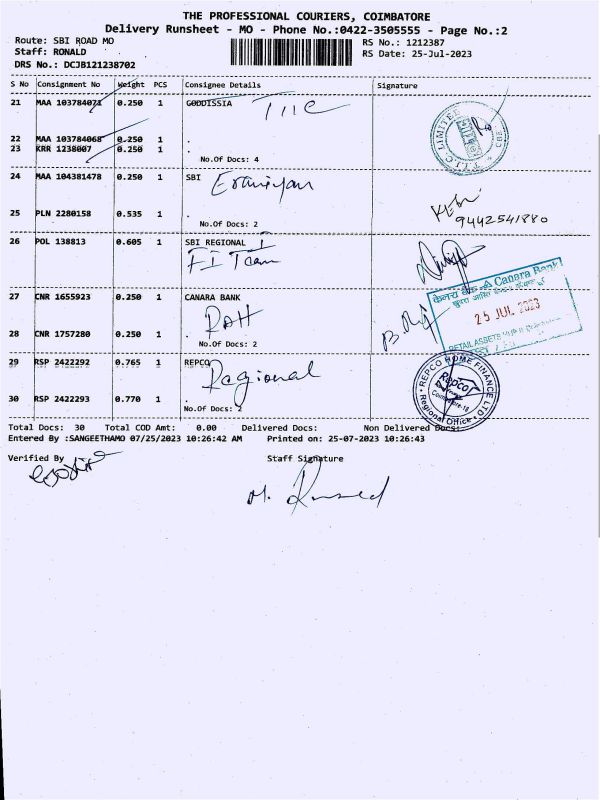 THE PROFESSIONAL COURIERS, COIMBATORE
Delivery Runsheet - MO - Phone No.:0422-3505555 - Page No.:2
Route: SBI ROAD MO
RS No.: 1212387
Staff: RONALD
RS Date: 25-Jul-2023
DRS No.: DCJB121238702
S No Consignment No Weight PCS Consignee Details Signature
21 MAA 103784071 0.250 1 GODDISSIA
22 MAA 103784068 0.250 1 .
23 KRR 1238007 0.250 1 .
No.Of Docs: 4
24 MAA 104381478 0.250 1 SBI
25 PLN 2280158 0.535 1 .
9442541880
No.Of Docs: 2
26 POL 138813 0.605 1 SBI REGIONAL
FI Team
केनरा बैंक Canara Bank
25 JUL 2023
27 CNR 1655923 0.250 1 CANARA BANK
RAH
28 CNR 1757280 0.250 1 .
No.Of Docs: 2
29 RSP 2422292 0.765 1 REPCO
Regional
REPCO HOME FINANCE LTD
Repco
Coimbatore-18
Regional Office
30 RSP 2422293 0.770 1 .
No.Of Docs: 2
Total Docs: 30 Total COD Amt: 0.00 Delivered Docs: Non Delivered Docs:
Entered By :SANGEETHAMO 07/25/2023 10:26:42 AM Printed on: 25-07-2023 10:26:43
Verified By Staff Signature